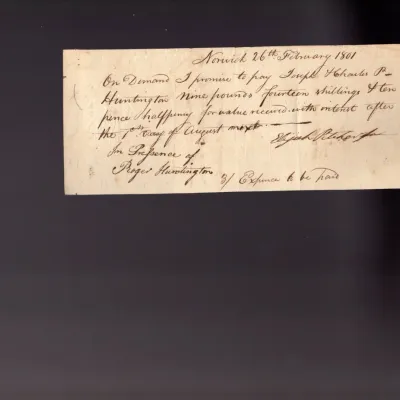 Norwich 26th February 1801
On Demand I promise to pay Joseph & Charles P-
Huntington Nine pounds fourteen shillings & ten
pence halfpenny for value received with interest after
the 1st day of August next.
In Presence of
Roger Huntington
3/ Expence to be paid